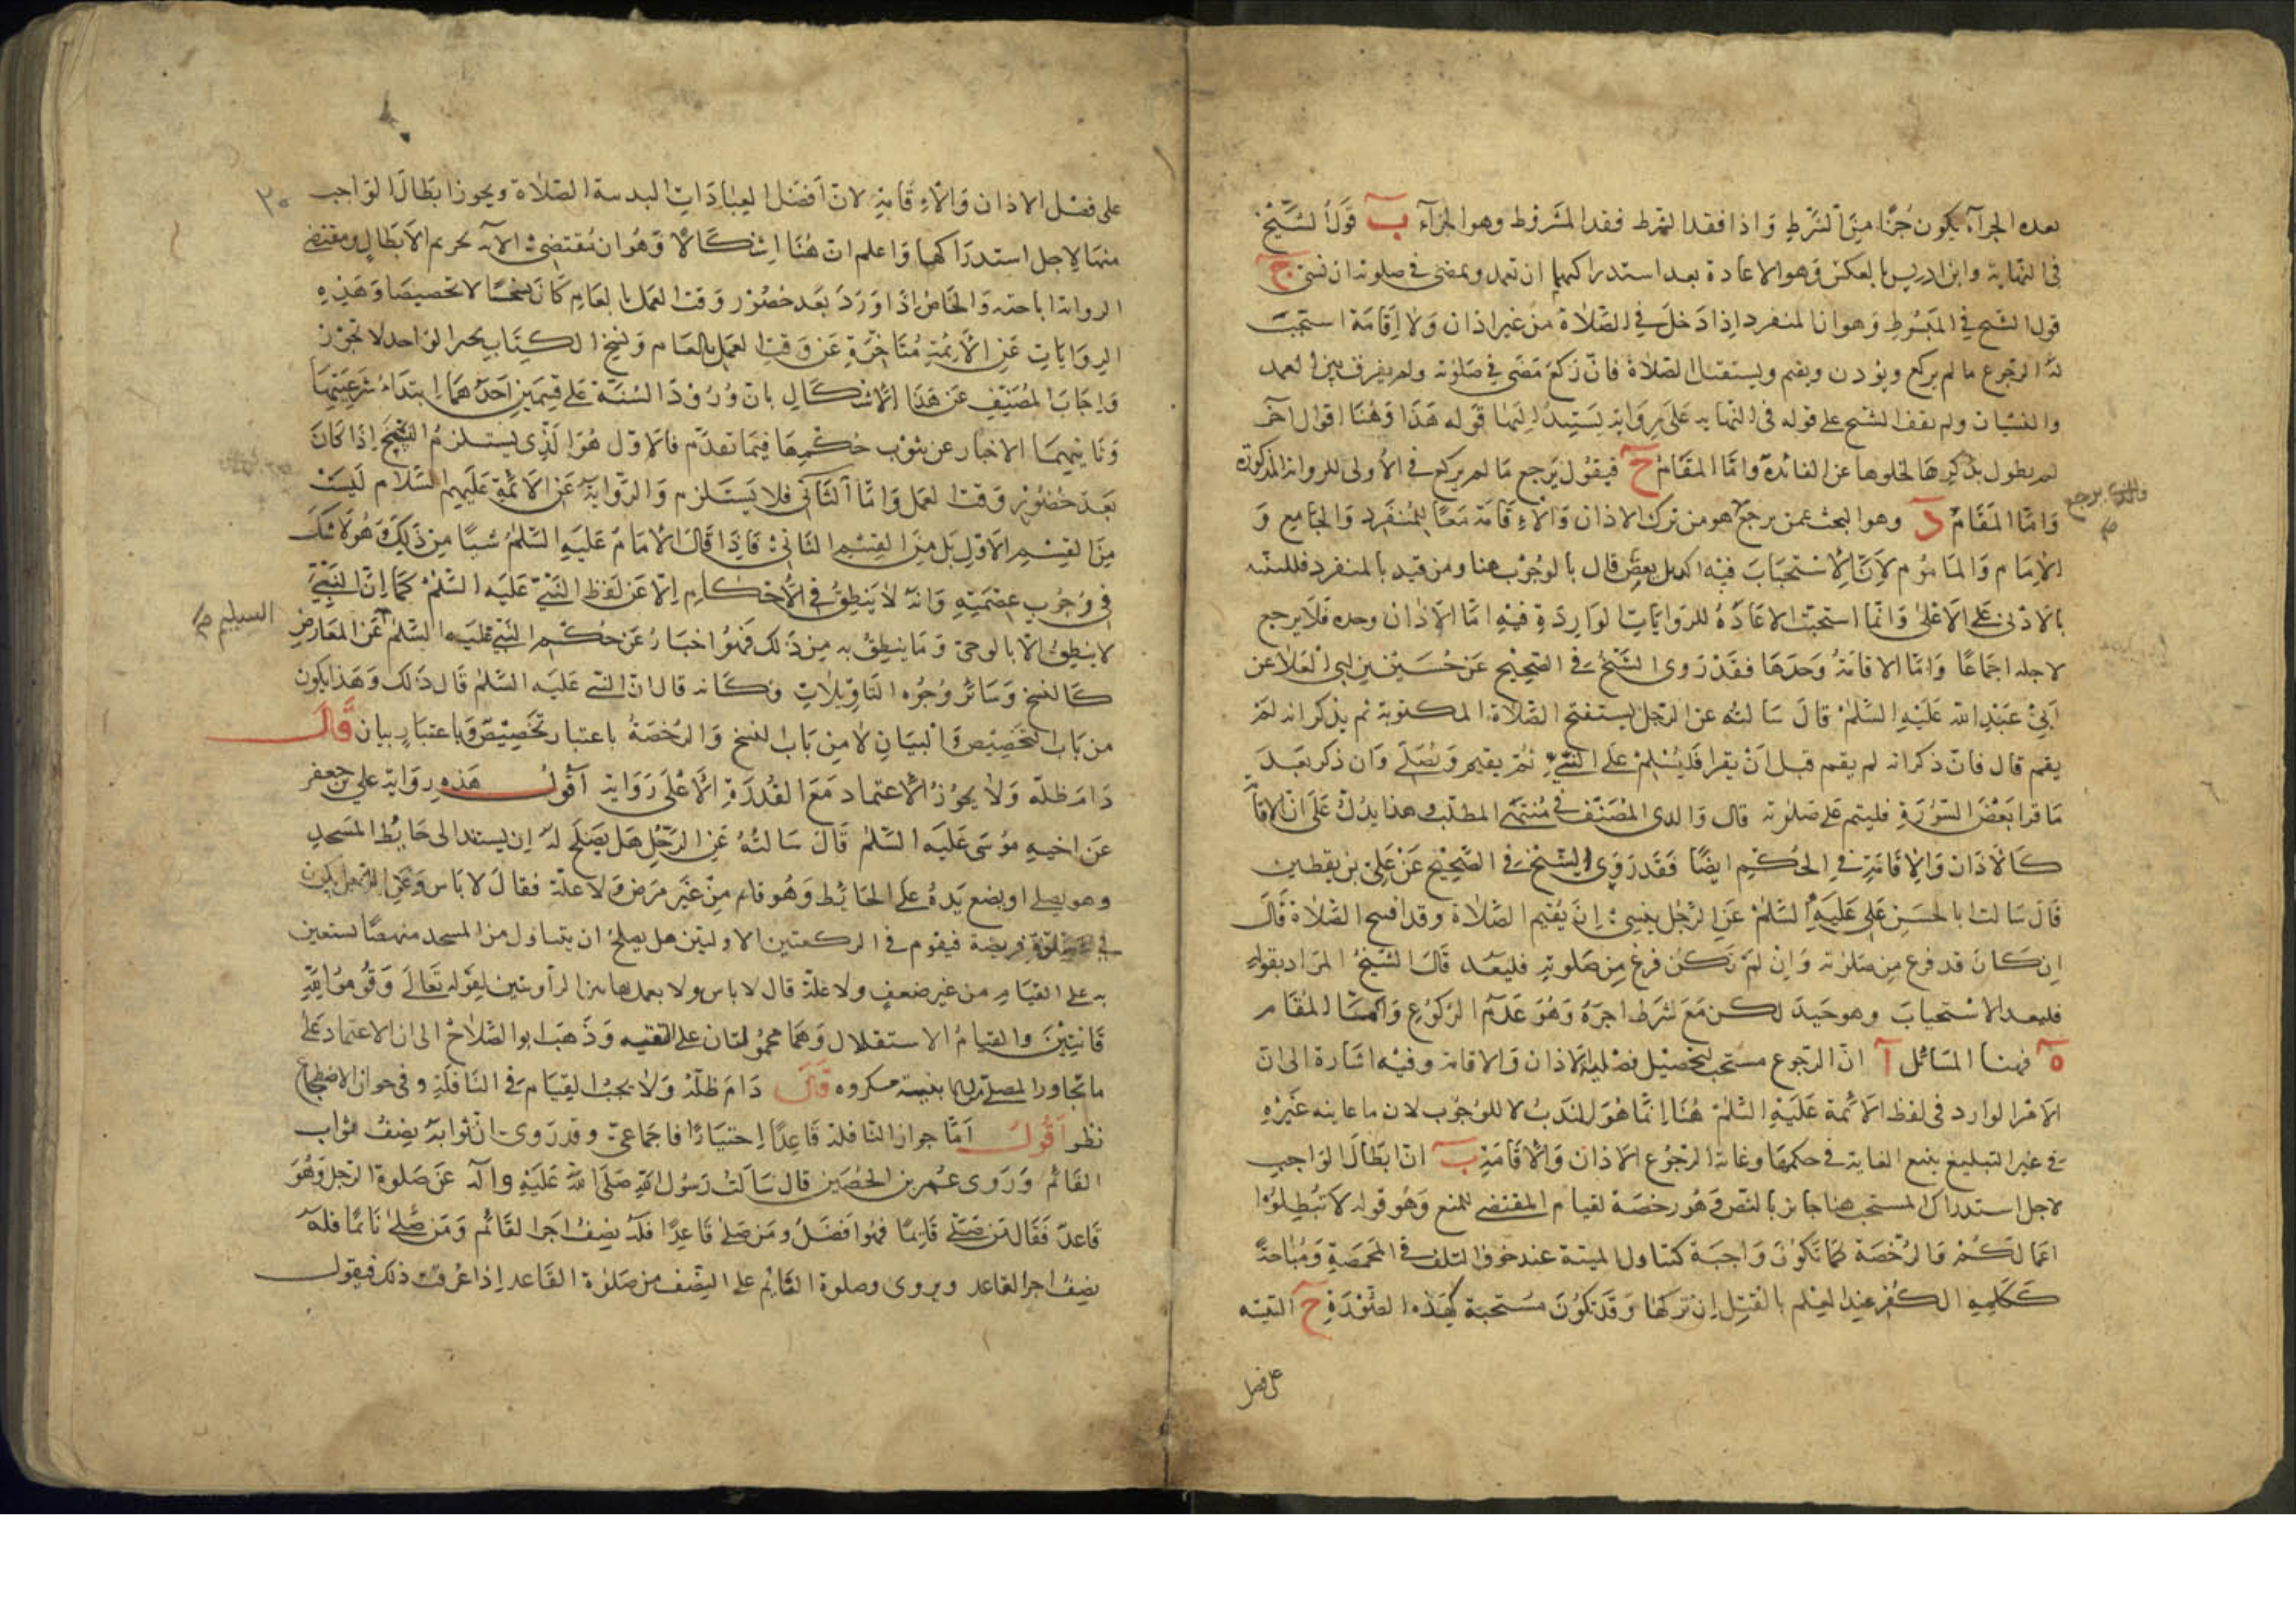 بعده الجزآء يكون جزًا من الشرط واذا فقد الشرط فقد المشروط وهو الجزآء ب قول الشيخ
فى النهاية وابن ادريس بالعكس وهو الاعادة بعد استدراكهما ان تعمد ويمضى فى صلوته ان نسى ج
قول الشيخ فى المبسوط وهو ان المنفرد اذا دخل فى الصلاة من غير اذان ولا اقامة استحب
له الرجوع ما لم يركع ويؤذن ويقيم ويستقبل الصلاة فان ركع مضى فى صلوته ولم يفرق بين العمد
والنسيان ولم يقف الشيخ على قوله فى النهايه على رواية يستند اليها قوله هذا وهنا اقوال اخر
لم يطول بذكرها لخلوها عن الفائدة واما المقام ح فيقول يرجع ما لم يركع فى الاولى للرواية المذكورة
واما المقام د وهو البحث عمن يرجع هو من ترك الاذان والاقامة معًا للمنفرد والجامع و
الامام والماموم لان الاستحباب فيه اكد بل بعض قال بالوجوب هنا ومن قيد بالمنفرد فللتنبيه
بالادنى على الاعلى وانما استحبت الاعادة للروايات الواردة فيه اما الاذان وحده فلا يرجع
لاجله اجماعًا واما الاقامة وحدها فقد روى الشيخ فى الصحيح عن حسين بن ابى العلا عن
ابى عبد الله عليه السلم قال سالته عن الرجل يستفتح الصلاة المكتوبة ثم يذكر انه لم
يقم قال فان ذكر انه لم يقم قبل ان يقرا فليسلم على النبى ثم يقيم ويصلى وان ذكر بعد
ما قرا بعض السورة فليتم على صلوته قال والدى المصنف فى منتهى المطلب هذا يدل على ان الاقا
كالاذان والاقامة فى الحكم ايضًا فقد روى الشيخ فى الصحيح عن على بن يقطين
قال سالت ابا الحسن عليه السلم عن الرجل ينسى ان يقيم الصلاة وقد افتتح الصلاة قال
ان كان قد فرغ من صلوته وان لم تكن فرغ من صلوته فليعد قال الشيخ المراد بقوله
فليعد الاستحباب وهو جيد لكن مع شرط اخر وهو عدم الركوع واما المقام
ه فهنا المسائل ا ان الرجوع مستحب لتحصيل فضيلة الاذان والاقامة وفيه اشارة الى ان
الامر الوارد فى لفظ الائمة عليه السلم هنا انما هو للندب لا للوجوب لان ما عاينه غيره
فى غير التبليغ يتبع الغاية فى حكمها وغاية الرجوع الاذان والاقامة ب ان ابطال الواجب
لاجل استدراك المستحب هنا جائز بالنص وهو رخصة لقيام المقتضى للمنع وهو قوله لا تبطلوا
اعمالكم والرخصة كما تكون واجبة كتناول الميتة عند خوف التلف فى المخمصة ومباحة
ككلمة الكفر عند العلم بالقتل ان تركها وقد تكون مستحبة كهذه الصورة ح التنبيه
على فضل
على فضل الاذان والاقامة لان افضل العبادات البدنية الصلاة ويجوز ابطال الواجب
منهما لاجل استدراكهما واعلم ان هنا اشكالا وهو ان مقتضى الآية تحريم الابطال ومقتضى
الرواية اباحته والخاص اذا ورد بعد حضور وقت العمل بالعام كان نسخًا لا تخصيصًا وهذه
الروايات عن الائمة متاخرة عن وقت العمل بالعام ونسخ الكتاب بخبر الواحد لا تجوز
واجاب المصنف عن هذا الاشكال بان ورود السنة على قسمين احدهما ابتداء شرعيتها
وثانيهما الاخبار عن ثبوت حكمها فيما تقدم فالاول هو الذى يستلزم النسخ اذا كان
بعد حضور وقت العمل واما الثانى فلا يستلزم والرواية عن الائمة عليهم السلام ليست
من القسم الاول بل من القسم الثانى فاذا قال الامام عليه السلم شيئًا من ذلك وهو لا شك
فى وجوب عصمته وانه لا ينطق فى الاحكام الا عن لفظ النبى عليه السلم كما ان النبى
لا ينطق الا بالوحى وما ينطق به من ذلك فهو اخبار عن حكم النبى عليه السلم عن المعارض
السليم صح
كالنسخ وسائر وجوه التاويلات وكانه قال ان النبى عليه السلم قال ذلك وهذا يكون
من باب التخصيص والبيان لا من باب النسخ والرخصة باعتبار تخصيص وباعتبار بيان قال
دام ظله ولا يجوز الاعتماد مع القدرة الا على رواية اقول هذه رواية على بن جعفر
عن اخيه موسى عليه السلم قال سالته عن الرجل هل يصلح له ان يستند الى حائط المسجد
وهو يصلى او يضع يده على الحائط وهو قائم من غير مرض ولا علة فقال لا باس وعن الرجل يكون
فى صلوة فريضة فيقوم فى الركعتين الاوليتين هل يصلح ان يتناول من المسجد منهضًا يستعين
به على القيام من غير ضعف ولا علة قال لا باس ولا يعمل بهاتين الراويتين لقوله تعالى وقوموا لله
قانتين والقيام الاستقلال وهما محمولتان على التقيه وذهب ابو الصلاح الى ان الاعتماد على
ما يجاور المصلى من الابنية مكروه قال دام ظله ولا يجب القيام فى النافلة وفى جواز الاضطجاع
نظر اقول اما جواز النافلة قاعدًا اختيارًا فاجماعى وقد روى ان ثوابه نصف ثواب
القائم وروى عمر بن الحصين قال سالت رسول الله صلى الله عليه وآله عن صلوة الرجل وهو
قاعد فقال من صلى قائمًا فهو افضل ومن صلى قاعدًا فله نصف اجر القائم ومن صلى نائمًا فله
نصف اجر القاعد ويروى وصلوة النائم على النصف من صلوة القاعد اذا عرفت ذلك فيقول